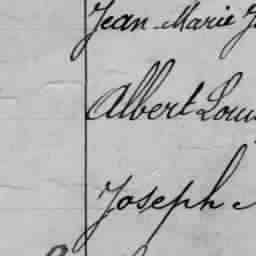 Jean Marie
Albert Louis
Joseph